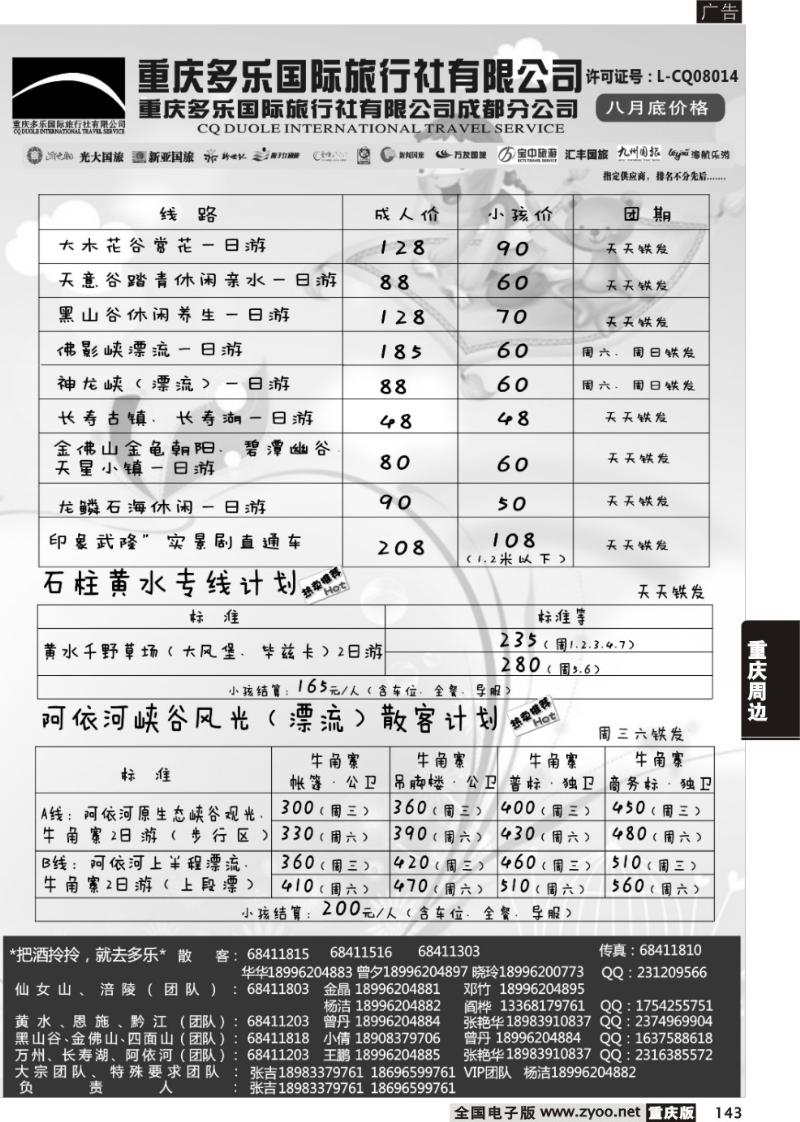 广告
重庆多乐国际旅行社有限公司 许可证号：L-CQ08014
重庆多乐国际旅行社有限公司成都分公司 八月底价格
CQ DUOLE INTERNATIONAL TRAVEL SERVICE
重庆多乐国际旅行社有限公司
CQ DUOLE INTERNATIONAL TRAVEL SERVICE
光大国旅 新亚国旅 新闻国旅 万友国旅 宝中旅游 汇丰国旅 九州国旅 海航乐游
指定供应商，排名不分先后......
线路 成人价 小孩价 团期
大木花谷赏花一日游 128 90 天天铁发
天意谷踏青休闲亲水一日游 88 60 天天铁发
黑山谷休闲养生一日游 128 70 天天铁发
佛影峡漂流一日游 185 60 周六．周日铁发
神龙峡（漂流）一日游 88 60 周六．周日铁发
长寿古镇．长寿湖一日游 48 48 天天铁发
金佛山金龟朝阳．碧潭幽谷． 80 60 天天铁发
天星小镇一日游
龙鳞石海休闲一日游 90 50 天天铁发
印象武隆”实景剧直通车 208 108 天天铁发
（1.2米以下）
石柱黄水专线计划 热卖推荐 Hot 天天铁发
标准 标准等
黄水千野草场（大风堡．毕兹卡）2日游 235（周1.2.3.4.7）
280（周5.6）
小孩结算：165元/人（含车位．全餐．导服）
阿依河峡谷风光（漂流）散客计划 热卖推荐 Hot 周三六铁发
标准 牛角寨 牛角寨 牛角寨 牛角寨
帐篷·公卫 吊脚楼·公卫 普标·独卫 商务标·独卫
A线：阿依河原生态峡谷观光． 300（周三） 360（周三） 400（周三） 450（周三）
牛角寨2日游（步行区） 330（周六） 390（周六） 430（周六） 480（周六）
B线：阿依河上半程漂流． 360（周三） 420（周三） 460（周三） 510（周三）
牛角寨2日游（上段漂） 410（周六） 470（周六） 510（周六） 560（周六）
小孩结算：200元/人（含车位．全餐．导服）
*把酒拎拎，就去多乐* 散客：68411815 68411516 68411303 传真：68411810
华华18996204883 曾夕18996204897 晓玲18996200773 QQ：231209566
仙女山、涪陵（团队）：68411803 金晶 18996204881 邓竹 18996204895
杨洁 18996204882 阎桦 13368179761 QQ：1754255751
黄水、恩施、黔江（团队）：68411203 曾丹 18996204884 张艳华 18983910837 QQ：2374969904
黑山谷、金佛山、四面山（团队）：68411818 小倩 18908379706 曾丹 18996204884 QQ：1637588618
万州、长寿湖、阿依河（团队）：68411203 王鹏 18996204885 张艳华 18983910837 QQ：2316385572
大宗团队、特殊要求团队：张吉18983379761 18696599761 VIP团队 杨洁18996204882
负责人：张吉18983379761 18696599761
重庆周边
全国电子版 www.zyoo.net 重庆版 143